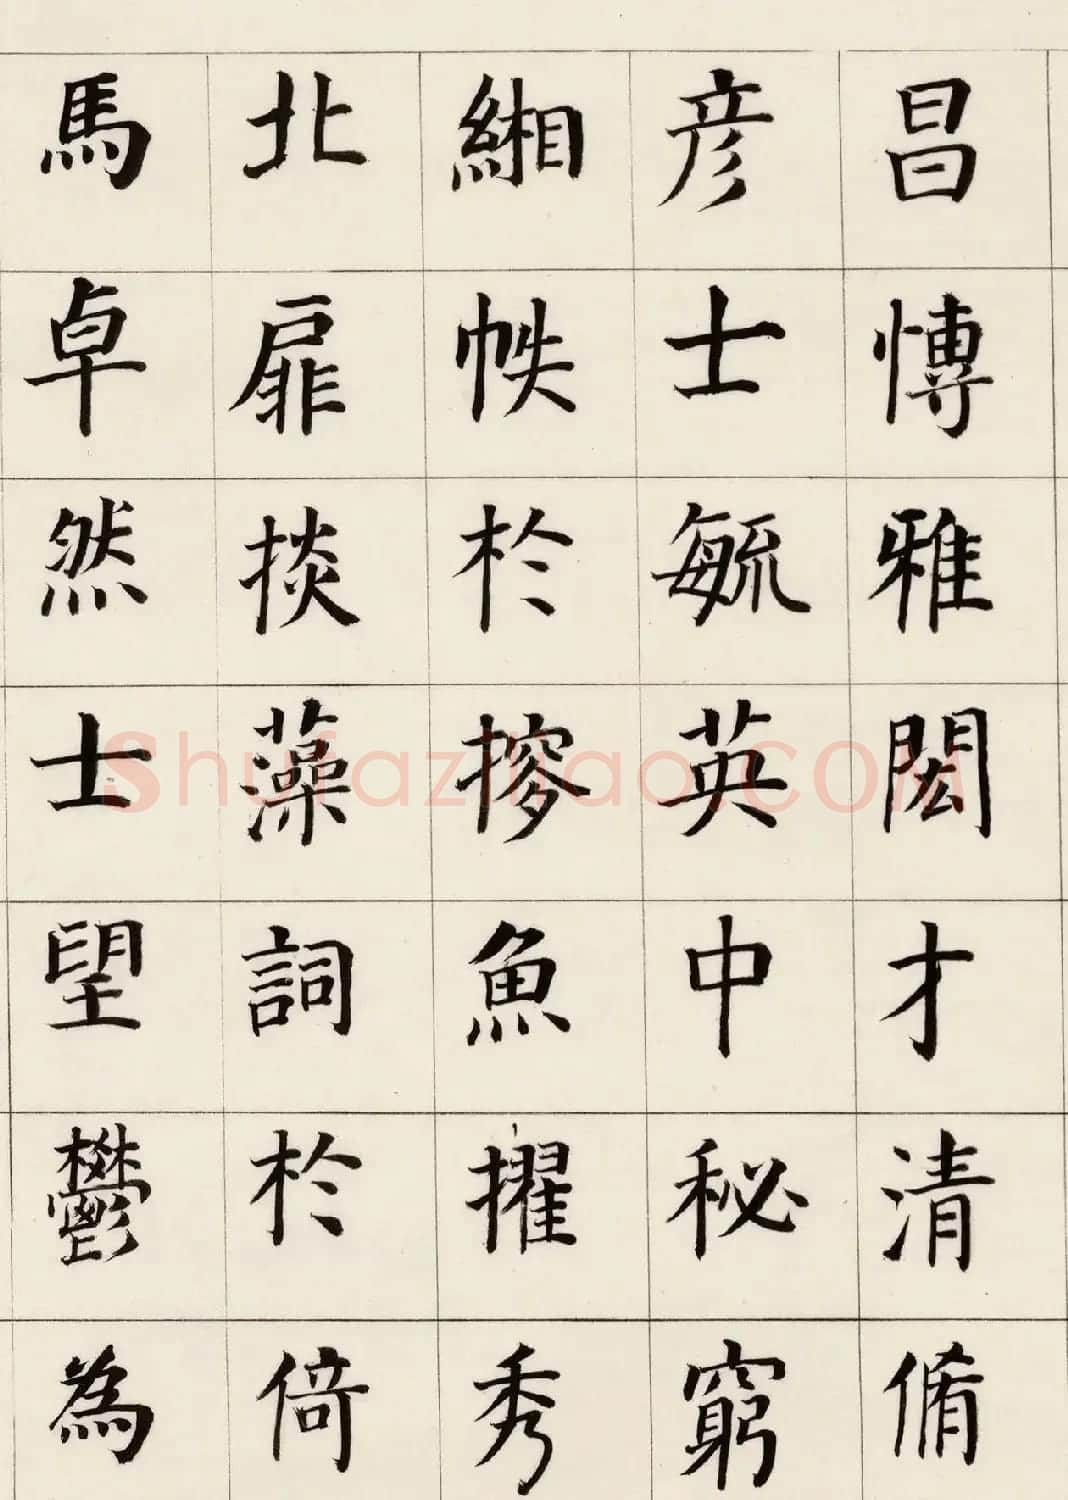 昌愽雅閎才清脩
彦士毓英中秘窮
緗帙於摉魚擢秀
北扉掞藻詞於倚
馬卓然士望鬱為
shufaziliao.com